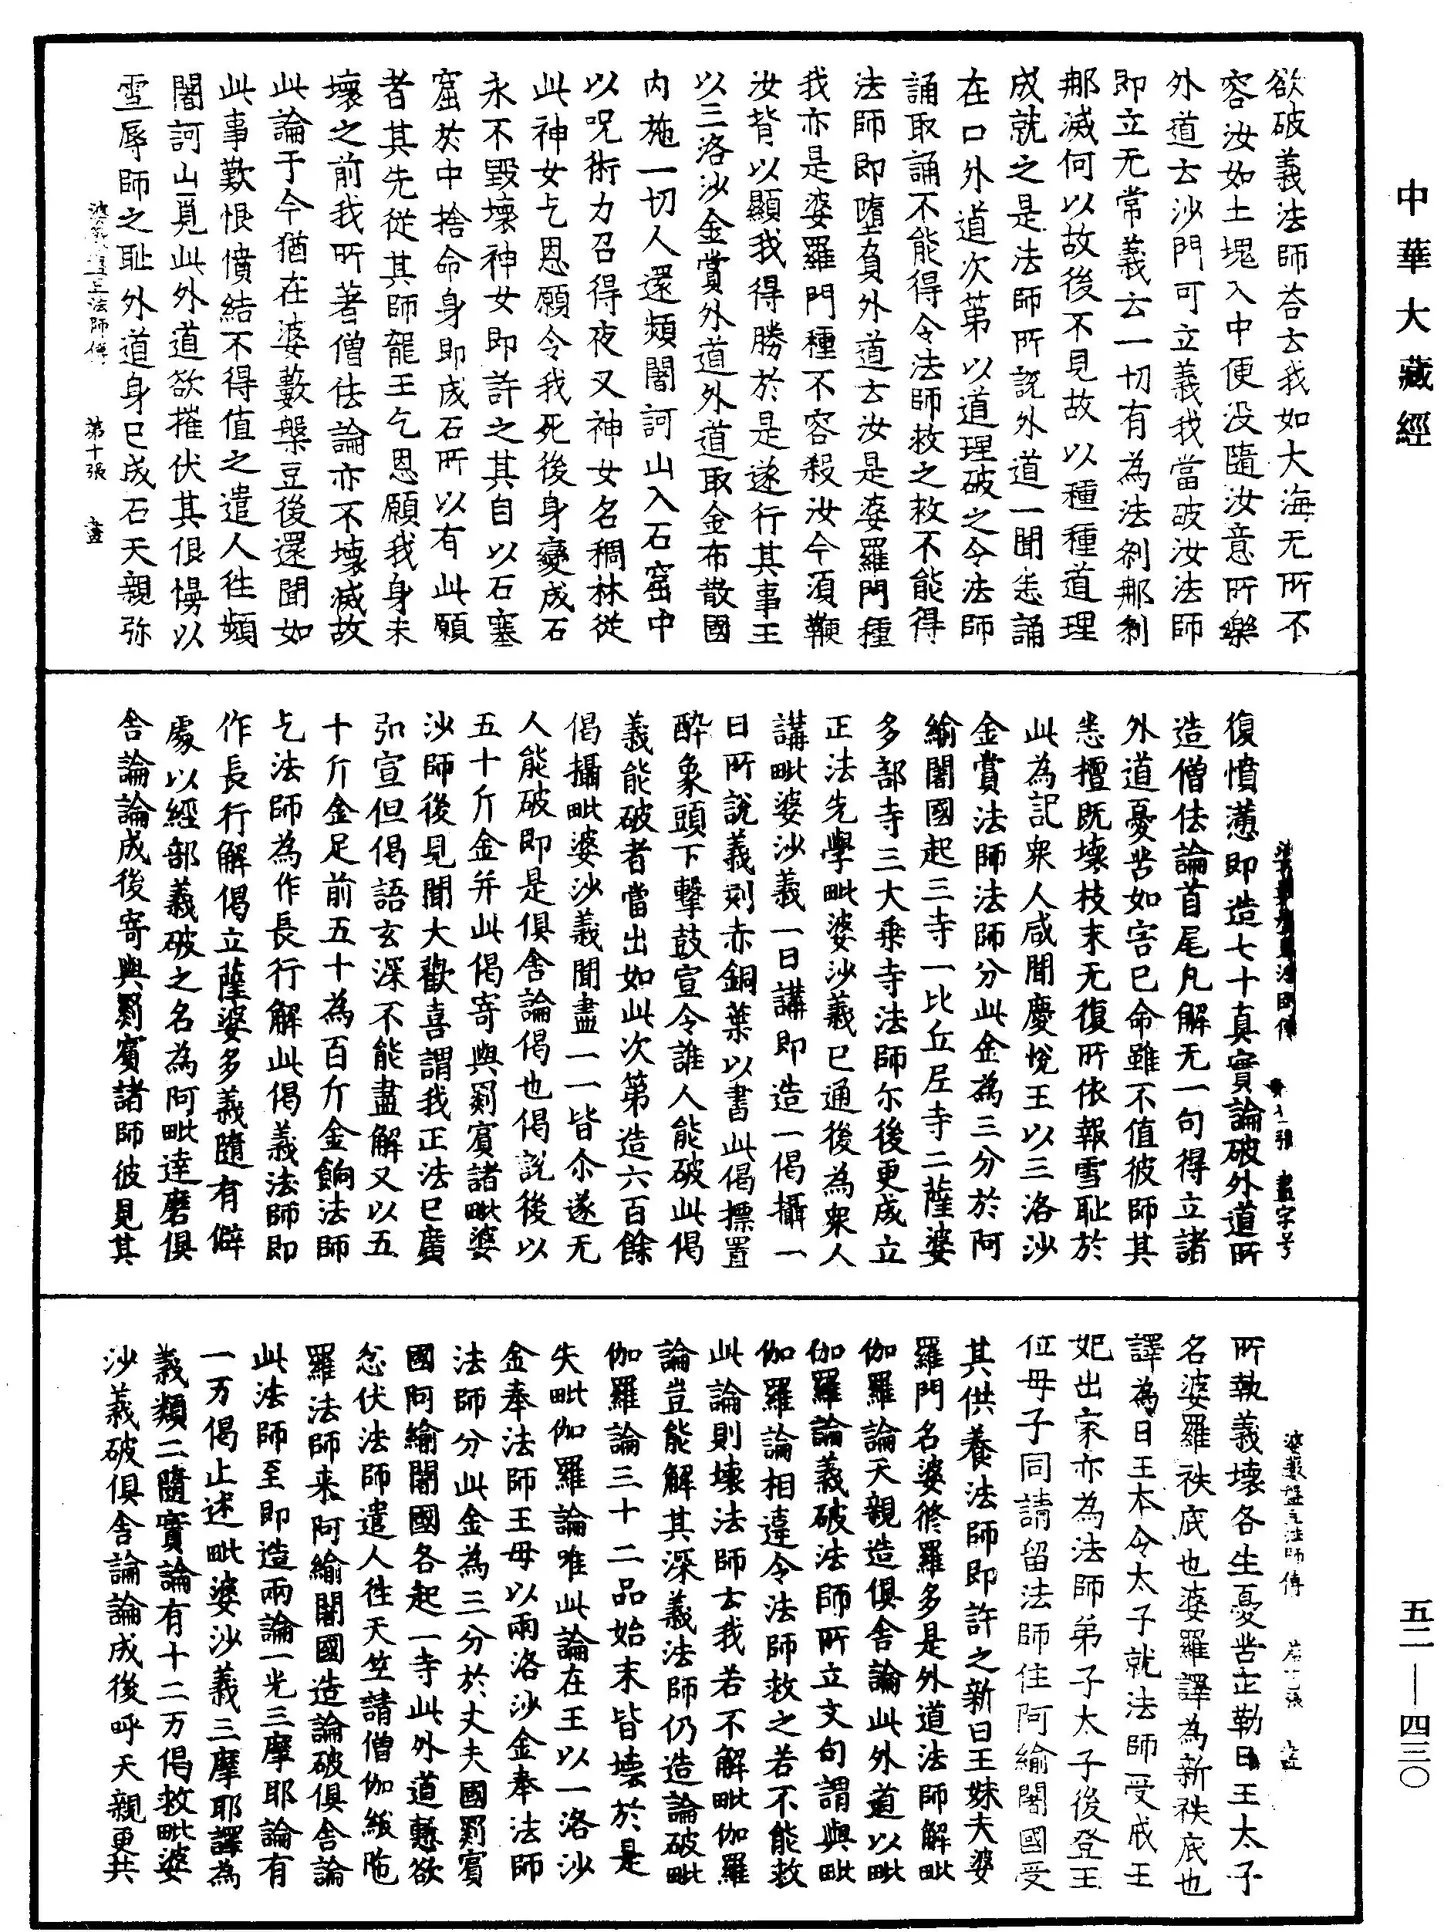 中華大藏經
欲破義法師荅云我如大海无所不
容汝如土塊入中便没隨汝意所樂
外道云沙門可立義我當破汝法師
即立无常義云一切有為法刹那刹
那滅何以故後不見故以種種道理
成就之是法師所説外道一聞悉誦
在口外道次第以道理破之令法師
誦取誦不能得令法師救之救不能得
法師即墮負外道云汝是婆羅門種
我亦是婆羅門種不容殺汝今須鞭
汝背以顯我得勝於是遂行其事王
以三洛沙金賞外道外道取金布散國
内施一切人還頻闍訶山入石窟中
以呪術力召得夜叉神女名稠林從
此神女乞恩願令我死後身變成石
永不毀壞神女即許之其自以石塞
窟於中捨命身即成石所以有此願
者其先從其師龍王乞恩願我身未
壞之前我所著僧佉論亦不壞滅故
此論于今猶在婆藪槃豆後還聞如
此事歎恨憤結不得值之遣人往頻
闍訶山覓此外道欲摧伏其佷慢以
雪辱師之恥外道身已成石天親弥
第十張 盡
復憤懣即造七十真實論破外道所
造僧佉論首尾凡解无一句得立諸
外道憂苦如害已命雖不值彼師其
悉檀既壞枝末无復所依報雪恥於
此為記衆人咸聞慶悅王以三洛沙
金賞法師法師分此金為三分於阿
緰闍國起三寺一比丘尼寺二薩婆
多部寺三大乗寺法師尒後更成立
正法先學毗婆沙義已通後為衆人
講毗婆沙義一日講即造一偈攝一
日所説義刻赤銅葉以書此偈摽置
醉象頭下擊鼓宣令誰人能破此偈
義能破者當出如此次第造六百餘
偈攝毗婆沙義聞盡一一皆尒遂无
人能破即是俱舍論偈也偈説後以
五十斤金并此偈寄與罽賓諸毗婆
沙師後見聞大歡喜謂我正法已廣
弘宣但偈語玄深不能盡解又以五
十斤金足前五十為百斤金餉法師
乞法師為作長行解此偈義法師即
作長行解偈立薩婆多義隨有僻
處以經部義破之名為阿毗達磨俱
舍論論成後寄與罽賓諸師彼見其
婆藪盤豆法師傳
所執義壞各生憂苦正勒日王太子
名婆羅袟底也婆羅譯為新袟底也
譯為日王本令太子就法師受戒王
妃出家亦為法師弟子太子後登王
位母子同請留法師住阿緰闍國受
其供養法師即許之新日王妹夫婆
羅門名婆修羅多是外道法師解毗
伽羅論天親造俱舍論此外道以毗
伽羅論義破法師所立文句謂與毗
伽羅論相違令法師救之若不能救
此論則壞法師云我若不解毗伽羅
論豈能解其深義法師仍造論破毗
伽羅論三十二品始末皆壞於是
失毗伽羅論唯此論在王以一洛沙
金奉法師王母以兩洛沙金奉法師
法師分此金為三分於丈夫國罽賓
國阿緰闍國各起一寺此外道慙欲
忿伏法師遣人往天竺請僧伽紱陁
羅法師来阿緰闍國造論破俱舍論
此法師至即造兩論一光三摩耶論有
一万偈止述毗婆沙義三摩耶譯為
義類二隨實論有十二万偈救毗婆
沙義破俱舍論論成後呼天親更共
五二—四三〇